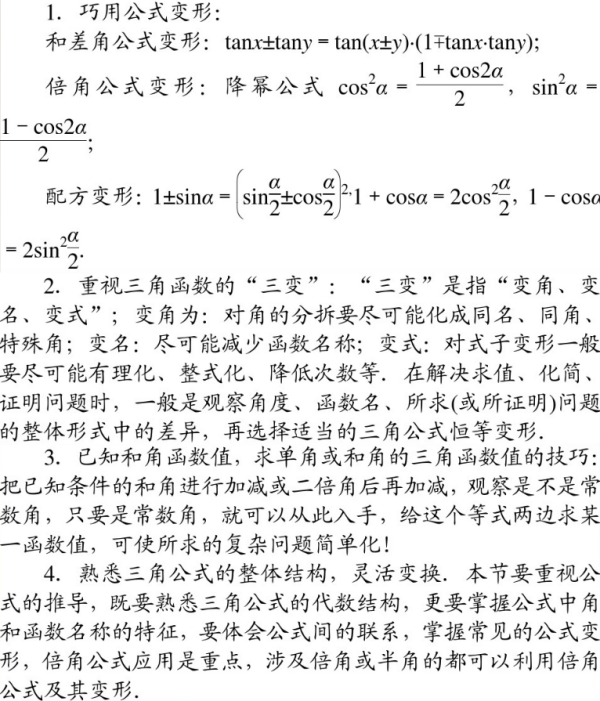 1．巧用公式变形：
和差角公式变形：tanx±tany = tan(x±y)·(1∓tanx·tany);
倍角公式变形：降幂公式 cos²α = (1 + cos2α)/2 ，sin²α =
(1 − cos2α)/2;
配方变形：1±sinα = (sin α/2 ± cos α/2)², 1 + cosα = 2cos² α/2, 1 − cosα
= 2sin² α/2.
2．重视三角函数的“三变”：“三变”是指“变角、变
名、变式”；变角为：对角的分拆要尽可能化成同名、同角、
特殊角；变名：尽可能减少函数名称；变式：对式子变形一般
要尽可能有理化、整式化、降低次数等．在解决求值、化简、
证明问题时，一般是观察角度、函数名、所求(或所证明)问题
的整体形式中的差异，再选择适当的三角公式恒等变形．
3．已知和角函数值，求单角或和角的三角函数值的技巧：
把已知条件的和角进行加减或二倍角后再加减，观察是不是常
数角，只要是常数角，就可以从此入手，给这个等式两边求某
一函数值，可使所求的复杂问题简单化！
4．熟悉三角公式的整体结构，灵活变换．本节要重视公
式的推导，既要熟悉三角公式的代数结构，更要掌握公式中角
和函数名称的特征，要体会公式间的联系，掌握常见的公式变
形，倍角公式应用是重点，涉及倍角或半角的都可以利用倍角
公式及其变形．